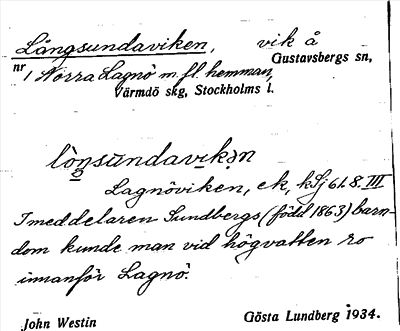 Långsundaviken, vik å
Gustavsbergs sn,
nr 1 Norra Lagnö m. fl. hemman,
Värmdö skg, Stockholms l.
Lagnöviken, ek, kSj 61. 8. III
I meddelaren Sundbergs (född 1863) barn-
dom kunde man vid högvatten ro
innanför Lagnö.
John Westin Gösta Lundberg 1934.